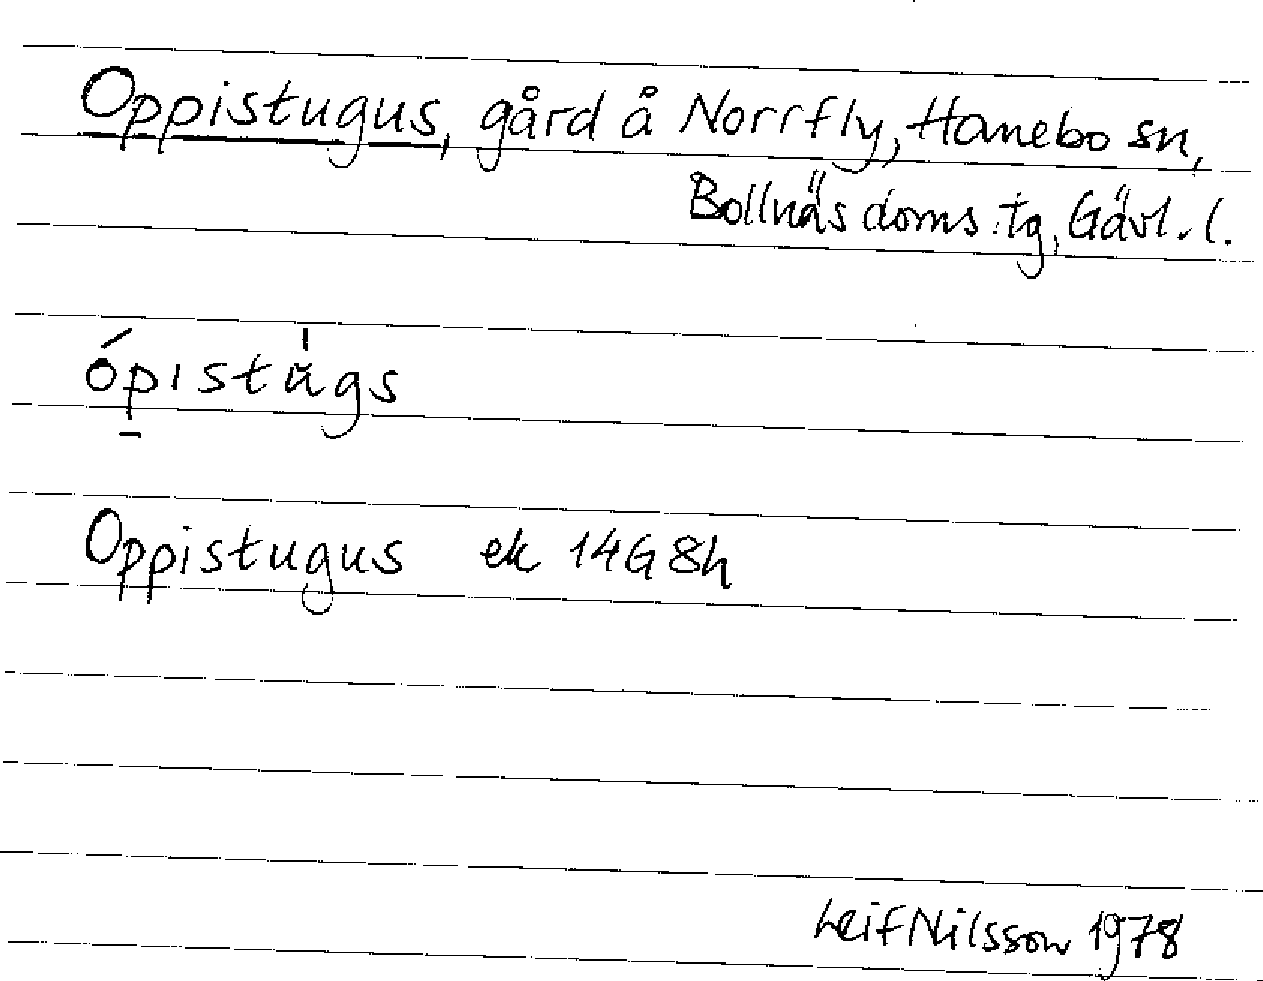 Oppistugus, gård å Norrfly, Hanebo sn,
Bollnäs doms.tg, Gävl. l.
ópıstùgs
Oppistugus ek 14G 8h
Leif Nilsson 1978